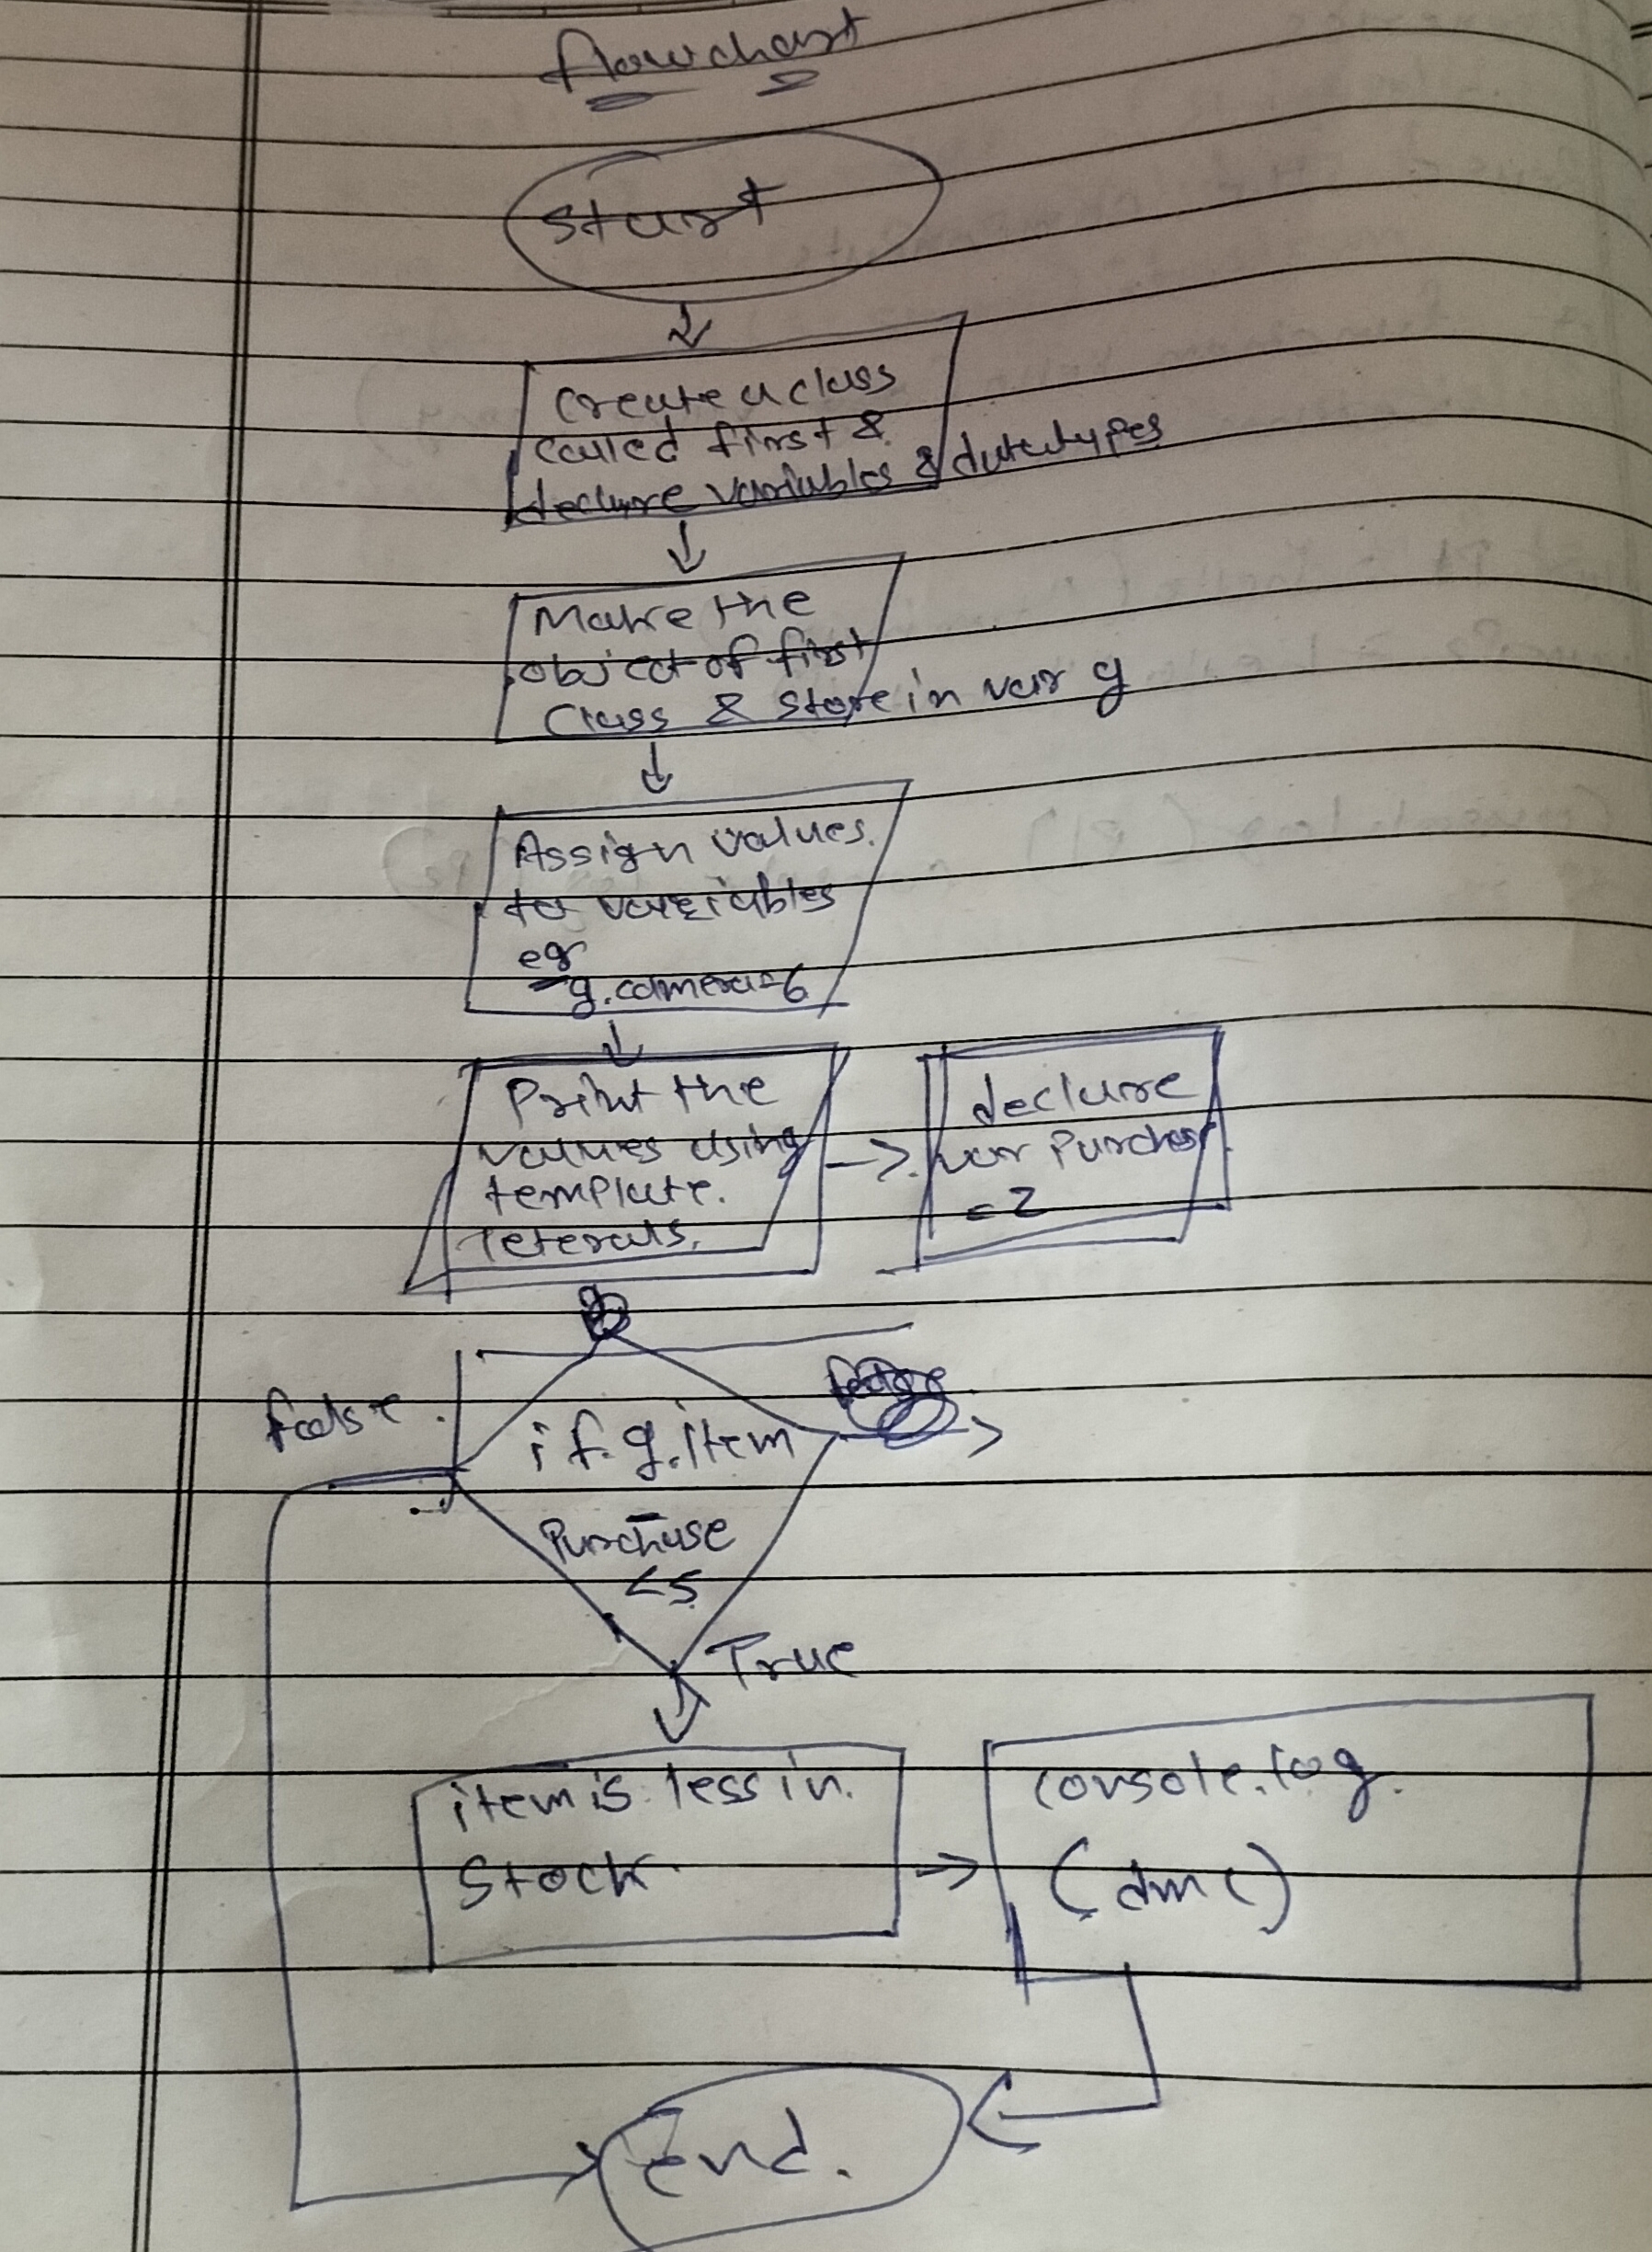 flowchart
Start
Create a class
called first &
declare variables & datatypes
Make the
object of first
Class & store in var g
Assign values.
to variables
eg
g.camera=6
Print the
values using
template.
leterals.
declare
var Purchase
= 2
false.
if g.item
Purchase
<5
True
item is less in.
Stock.
console.log.
(
)
end.